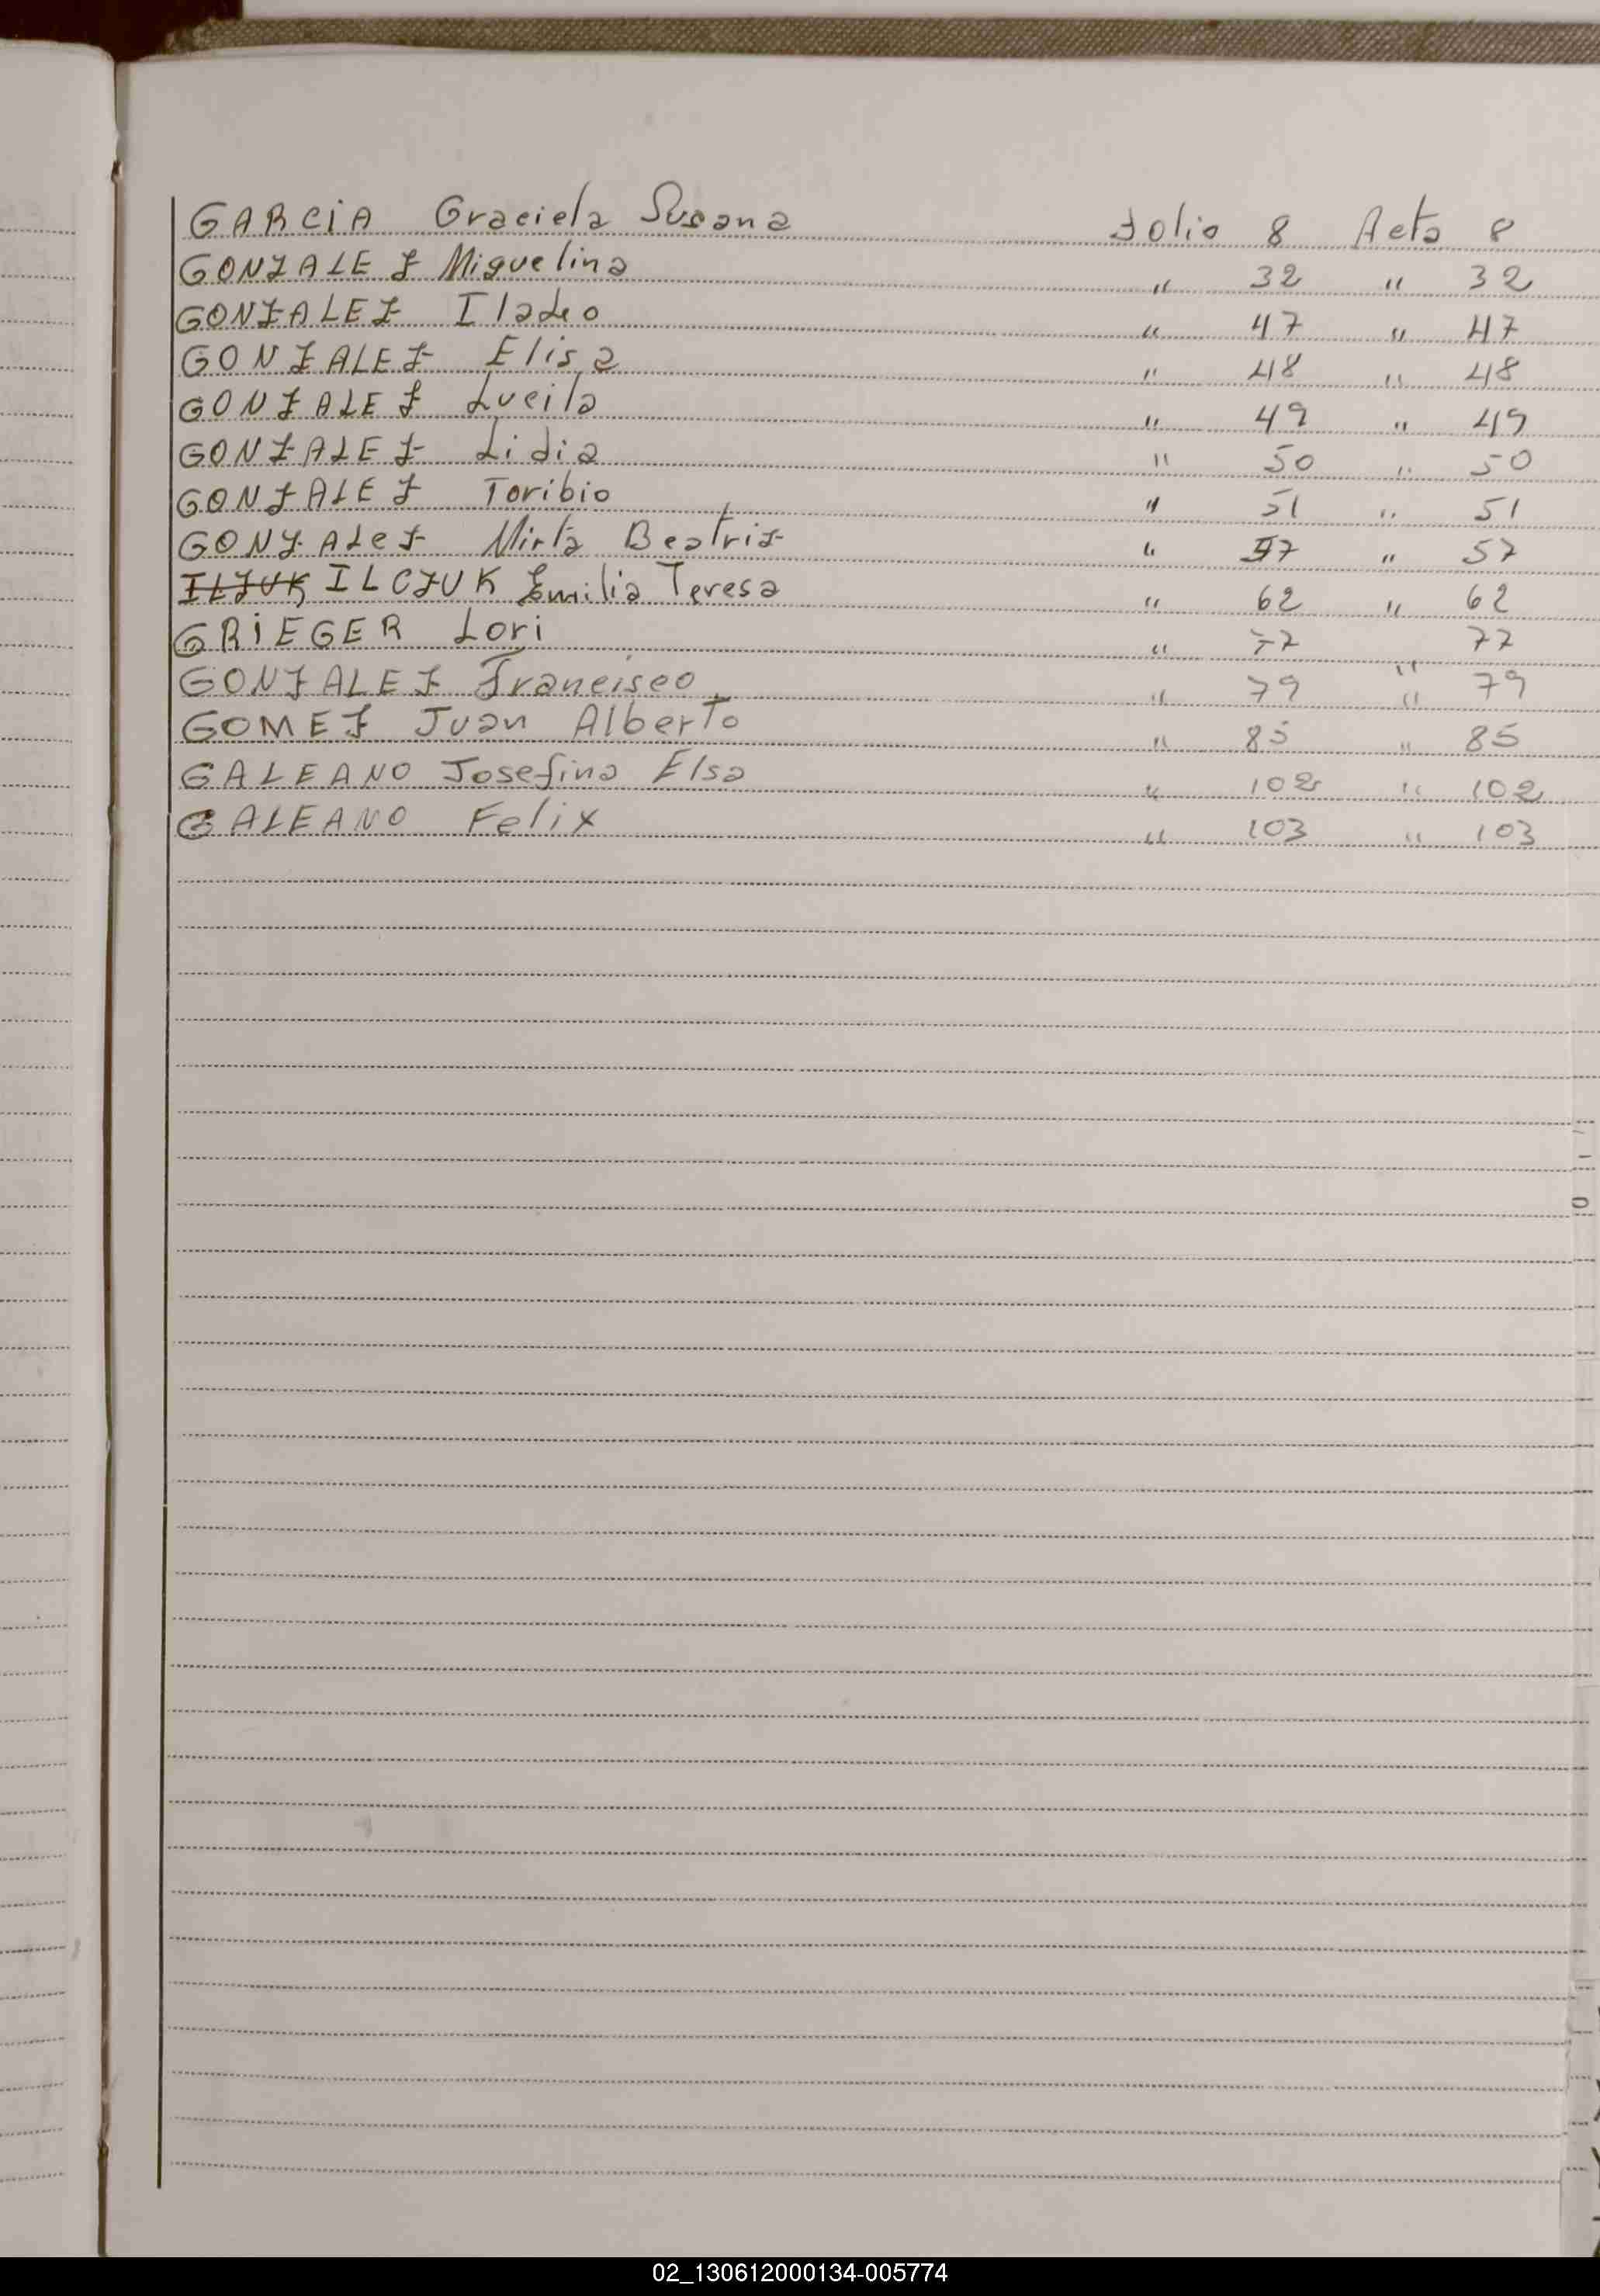 GARCIA Graciela Susana Folio 8 Acta 8
GONZALEZ Miguelina " 32 " 32
GONZALEZ Iladeo " 47 " 47
GONZALEZ Elisa " 48 " 48
GONZALEZ Lucila " 49 " 49
GONZALEZ Lidia " 50 " 50
GONZALEZ Toribio " 51 " 51
GONZALEZ Mirta Beatriz " 57 " 57
ILZUK ILCZUK Emilia Teresa " 62 " 62
GRIEGER Lori " 77 " 77
GONZALEZ Francisco " 79 " 79
GOMEZ Juan Alberto " 85 " 85
GALEANO Josefina Elsa " 102 " 102
GALEANO Felix " 103 " 103
02_130612000134-005774